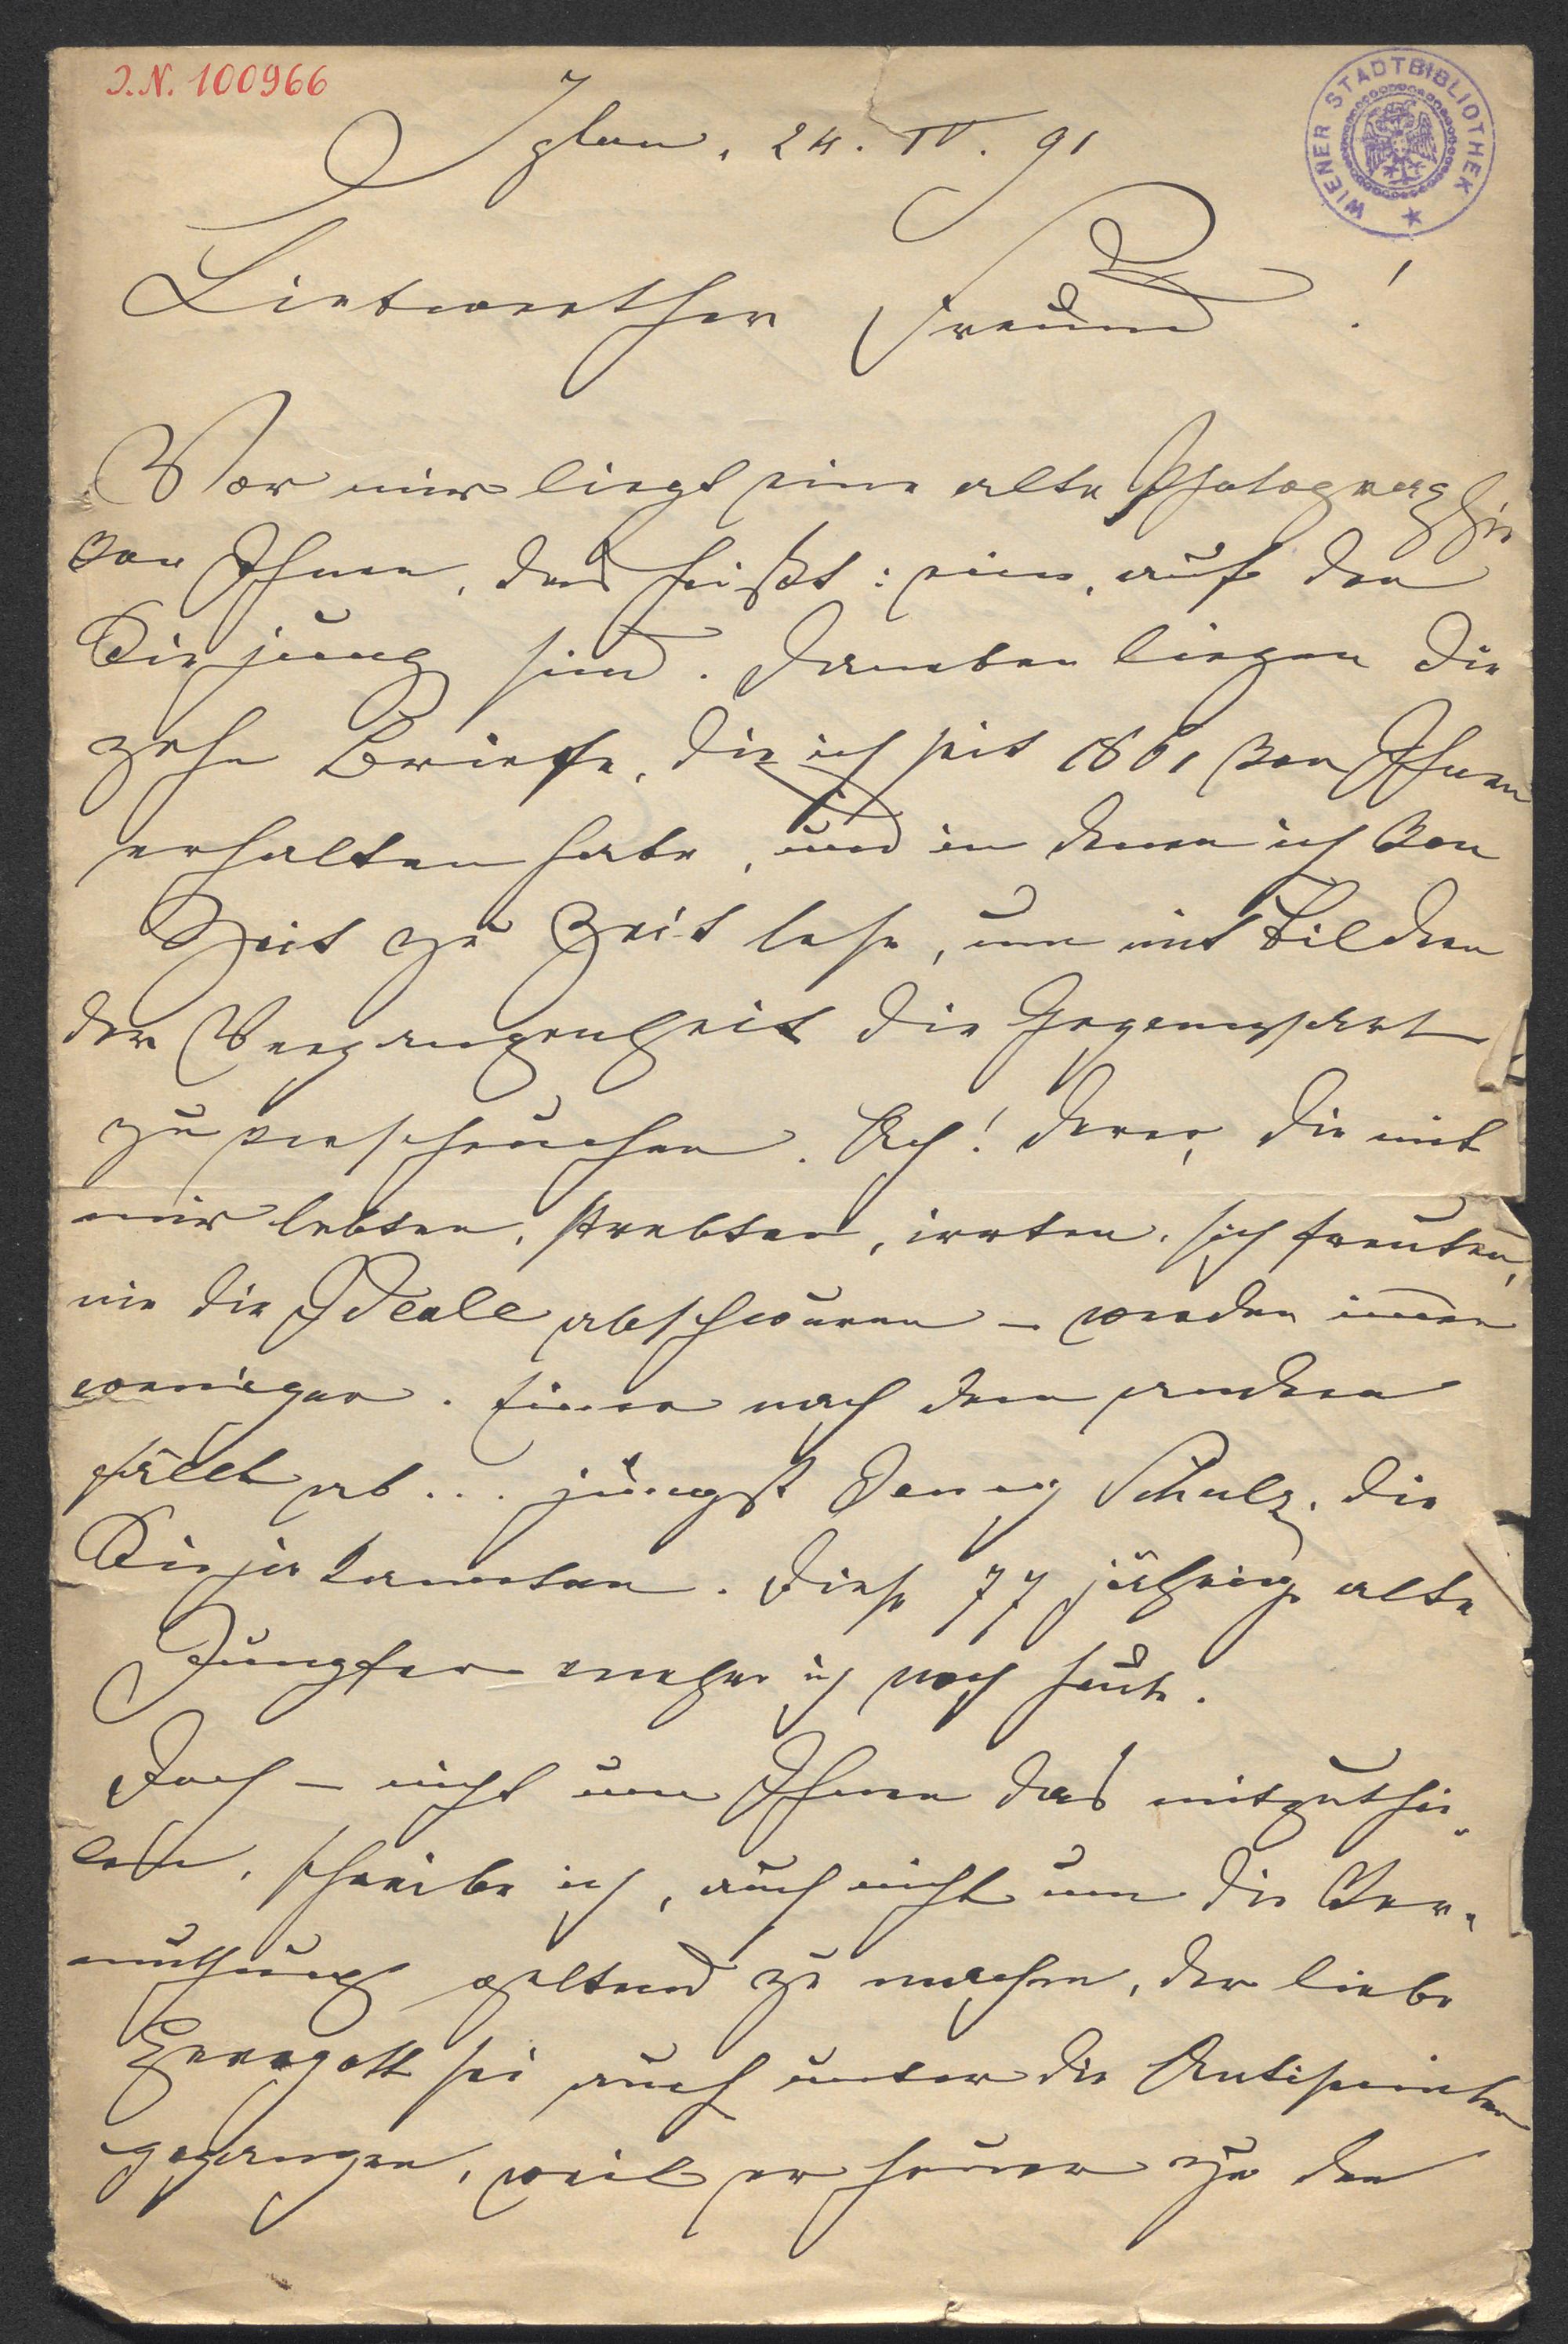 I.N. 100966
WIENER STADTBIBLIOTHEK
Iglau, 24. IV. 91
Liebwerther Freund!
Vor mir liegt eine alte Photographie
von Ihnen, das heißt: eine, auf der
Sie jung sind. Daneben liegen die
zehn Briefe, die ich seit 1861 von Ihnen
erhalten habe, und in denen ich von
Zeit zu Zeit lese, um mit Bildern
der Vergangenheit die Gegenwart
zu verscheuchen. Ach! derer, die mit
mir lebten, strebten, irrten, sich freuten,
nie die Ideale abschwuren – werden immer
weniger. Einer nach dem andern
fällt ab... jüngst Schulz, die
Sie ja kannten. Diese 77 jährige alte
Jungfer verehre ich noch heute.
Doch – nicht um Ihnen das mitzuthei-
len, schreibe ich, auch nicht um die Ver-
muthung geltend zu machen, der liebe
Herrgott sei auch unter die Antisemiten
gegangen, weil er heuer zu den